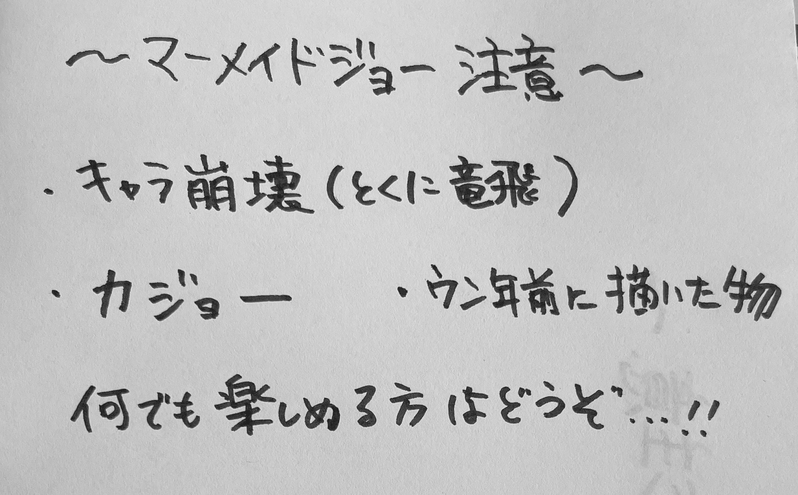 ～マーメイドジョー 注意～
・キャラ崩壊(とくに竜飛)
・カジョー ・ウン年前に描いた物
何でも楽しめる方はどうぞ…!!